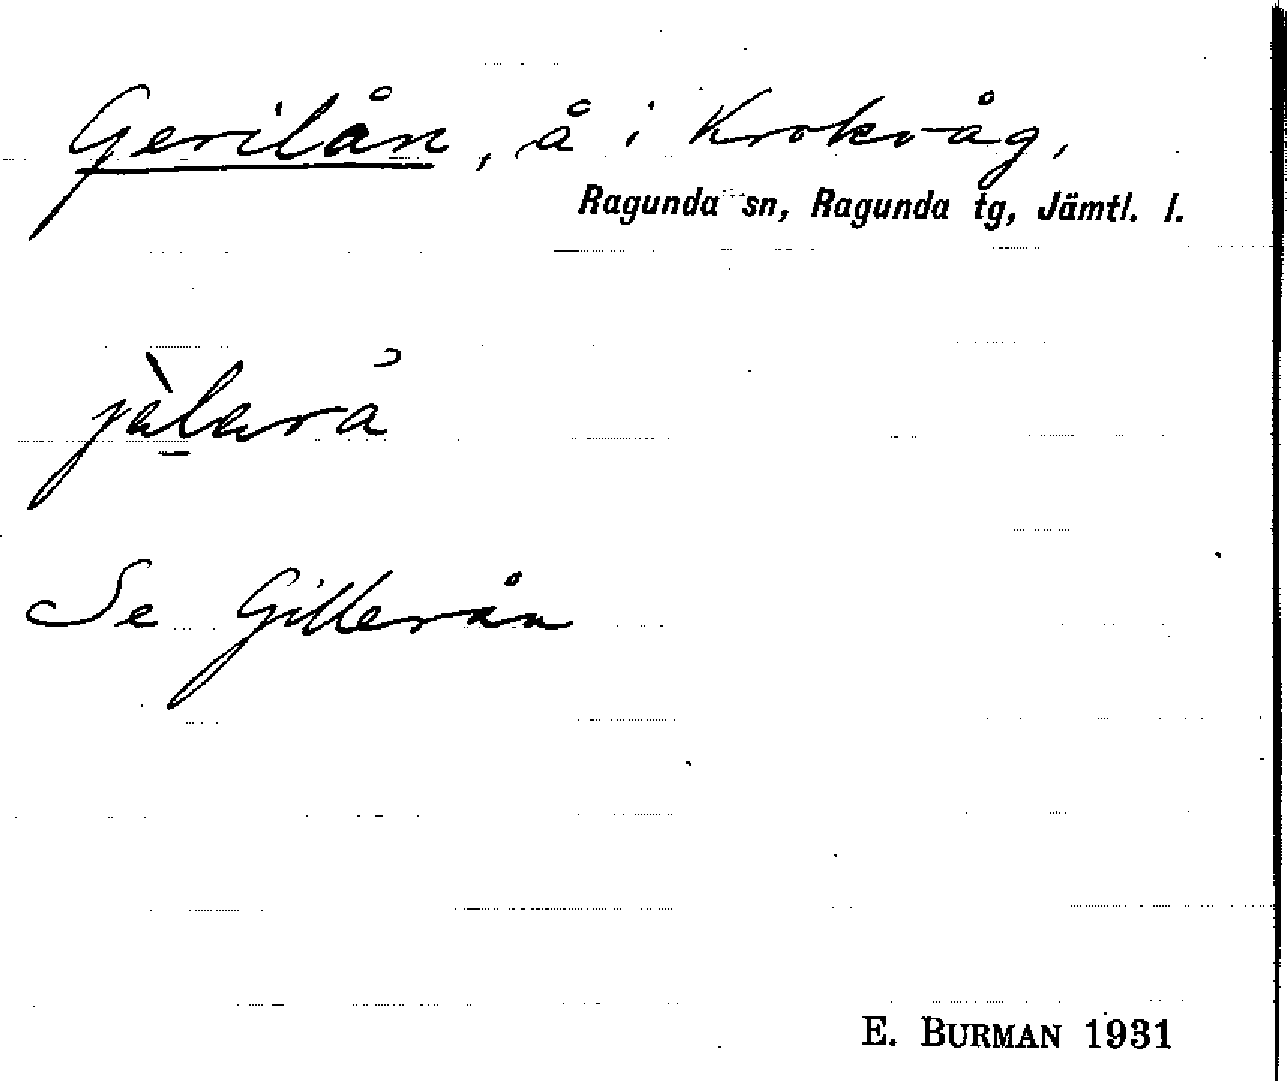 Gerilån, å i Krokvåg,
Ragunda sn, Ragunda tg, Jämtl. l.
jèlarå
Se Gillerån
E. BURMAN 1931